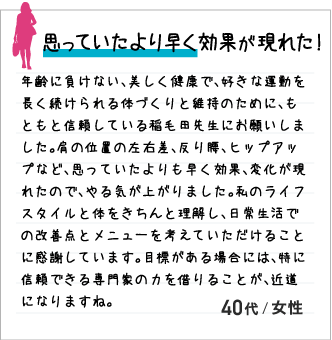 思っていたより早く効果が現れた!
年齢に負けない、美しく健康で、好きな運動を
長く続けられる体づくりと維持のために、も
ともと信頼している稲毛田先生にお願いしま
した。肩の位置の左右差、反り腰、ヒップアッ
プなど、思っていたよりも早く効果、変化が現
れたので、やる気が上がりました。私のライフ
スタイルと体をきちんと理解し、日常生活で
の改善点とメニューを考えていただけること
に感謝しています。目標がある場合には、特に
信頼できる専門家の力を借りることが、近道
になりますね。
40代 / 女性